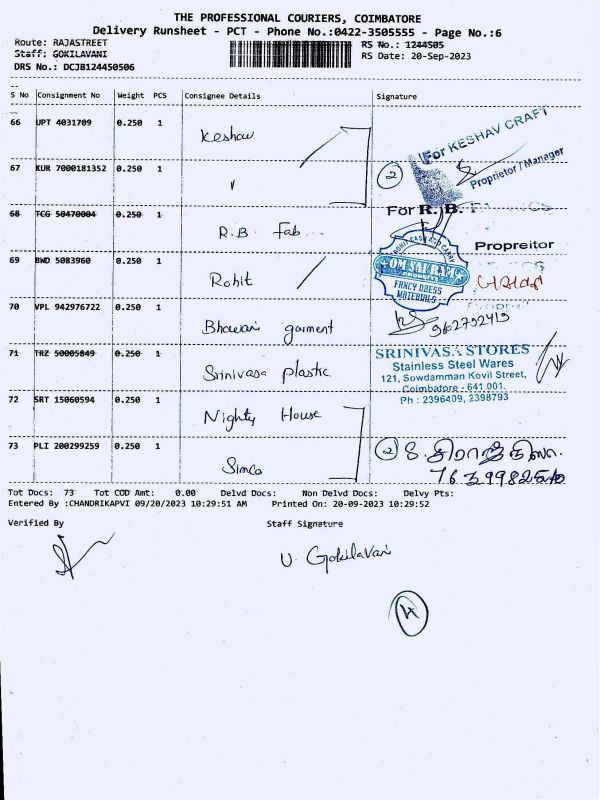 THE PROFESSIONAL COURIERS, COIMBATORE
Delivery Runsheet - PCT - Phone No.:0422-3505555 - Page No.:6
Route: RAJASTREET
RS No.: 1244505
Staff: GOKILAVANI
RS Date: 20-Sep-2023
DRS No.: DCJB124450506
S No Consignment No Weight PCS Consignee Details Signature
66 UPT 4031709 0.250 1 Keshav
For KESHAV CRAFT
Proprietor / Manager
67 KUR 7000181352 0.250 1 "
2
68 TCG 50470004 0.250 1 R.B. Fab...
For R. B.
Propreitor
69 BWD 5083960 0.250 1 Rohit
OM SAI RAM
FANCY DRESS
MATERIALS
70 VPL 942976722 0.250 1 Bhawani garment
962792419
71 TRZ 50005849 0.250 1 Srinivasa plastic
SRINIVASA STORES
Stainless Steel Wares
121, Sowdamman Kovil Street,
Coimbatore - 641 001.
Ph : 2396409, 2398793
72 SRT 15060594 0.250 1 Nighty House
73 PLI 200299259 0.250 1 Simca
2
Tot Docs: 73 Tot COD Amt: 0.00 Delvd Docs: Non Delvd Docs: Delvy Pts:
Entered By :CHANDRIKAPVI 09/20/2023 10:29:51 AM Printed On: 20-09-2023 10:29:52
Verified By
Staff Signature
U. Gokilavani